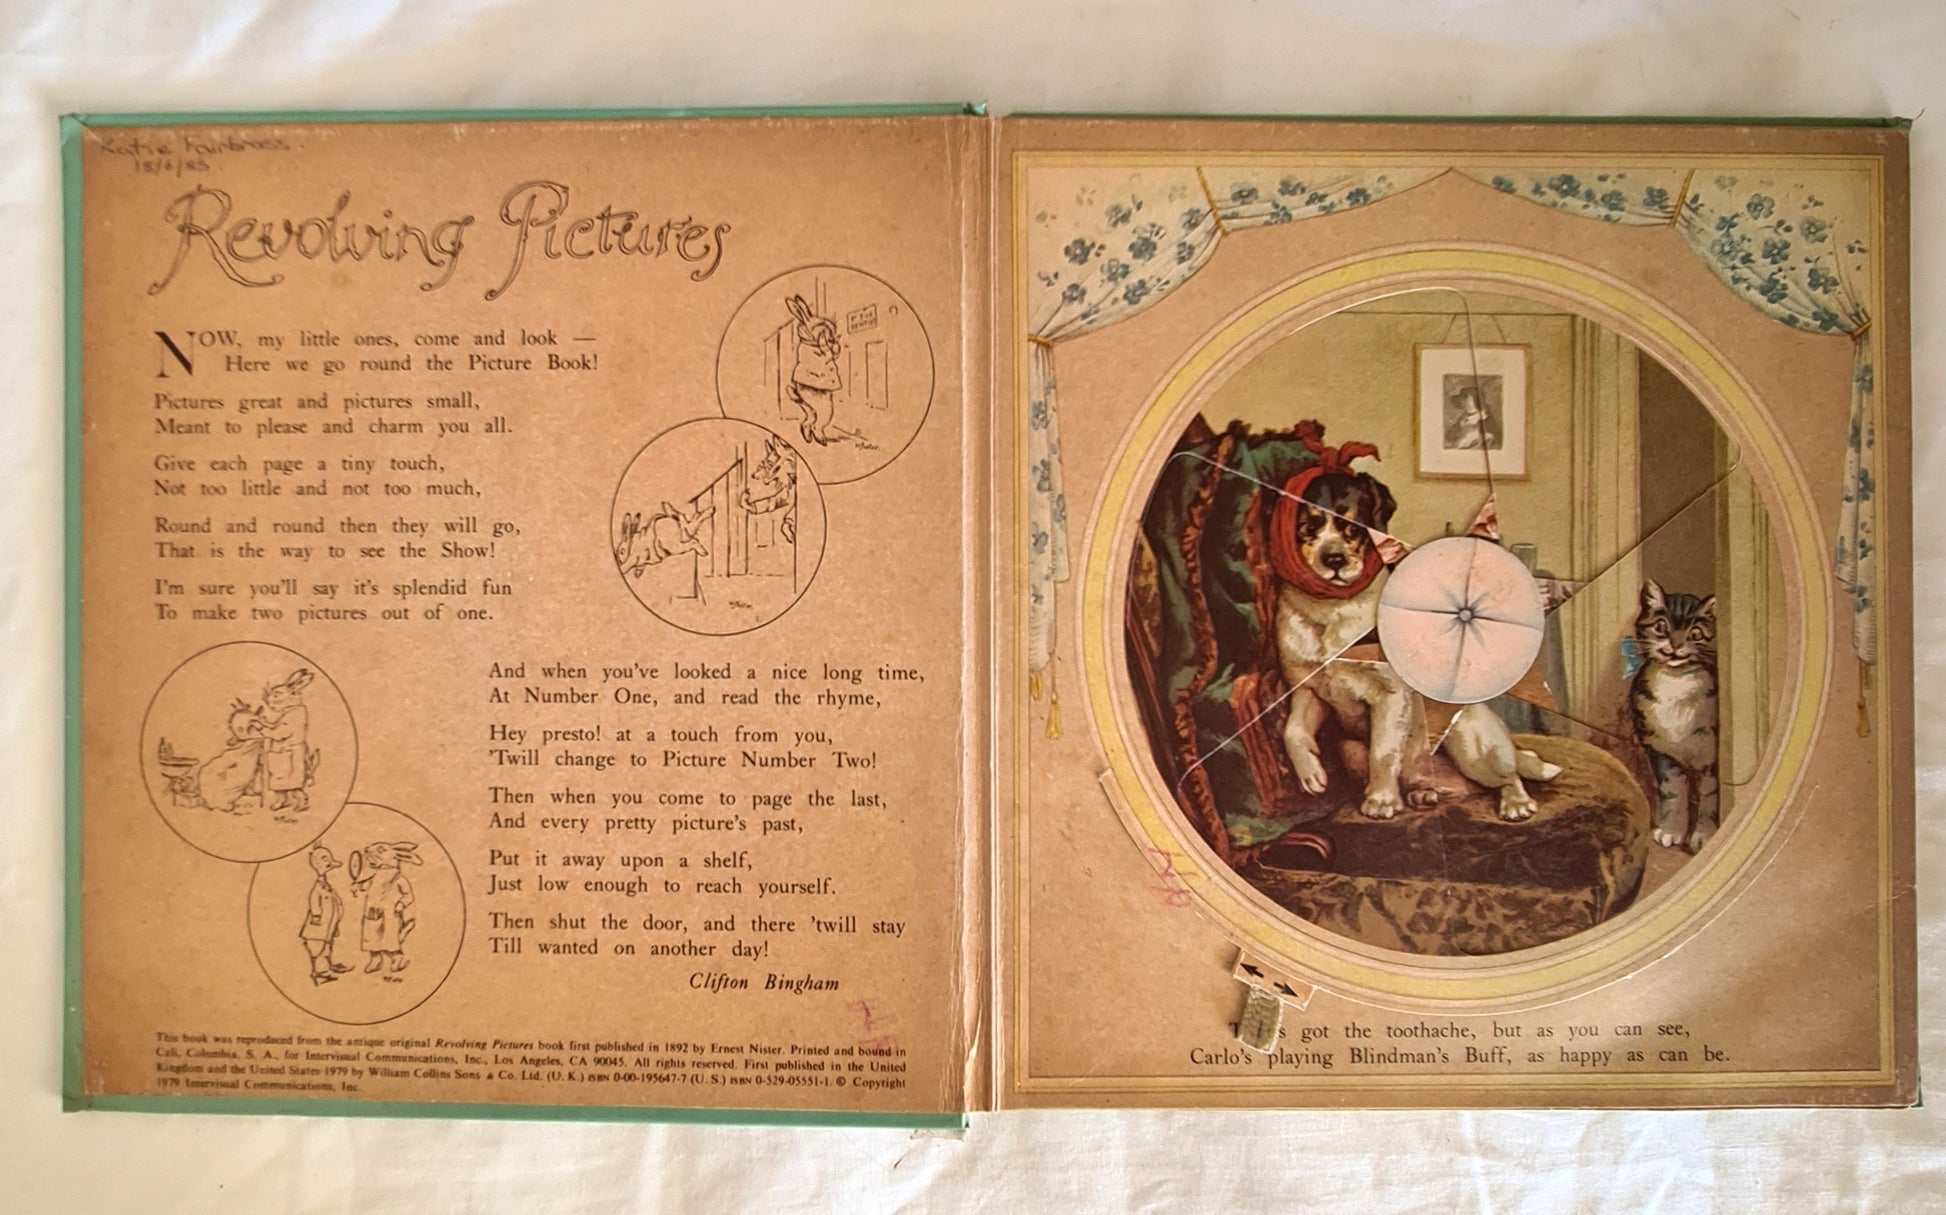 Katie Fairbrass.
18/6/85
Revolving Pictures
NOW, my little ones, come and look —
Here we go round the Picture Book!
Pictures great and pictures small,
Meant to please and charm you all.
Give each page a tiny touch,
Not too little and not too much,
Round and round then they will go,
That is the way to see the Show!
I'm sure you'll say it's splendid fun
To make two pictures out of one.
And when you've looked a nice long time,
At Number One, and read the rhyme,
Hey presto! at a touch from you,
'Twill change to Picture Number Two!
Then when you come to page the last,
And every pretty picture's past,
Put it away upon a shelf,
Just low enough to reach yourself.
Then shut the door, and there 'twill stay
Till wanted on another day!
Clifton Bingham
This book was reproduced from the antique original Revolving Pictures book first published in 1892 by Ernest Nister. Printed and bound in
Cali, Colombia, S. A., for Intervisual Communications, Inc., Los Angeles, CA 90045. All rights reserved. First published in the United
Kingdom and the United States 1979 by William Collins Sons & Co. Ltd. (U. K.) ISBN 0-00-195647-7 (U. S.) ISBN 0-529-05551-1. © Copyright
1979 Intervisual Communications, Inc.
got the toothache, but as you can see,
Carlo's playing Blindman's Buff, as happy as can be.